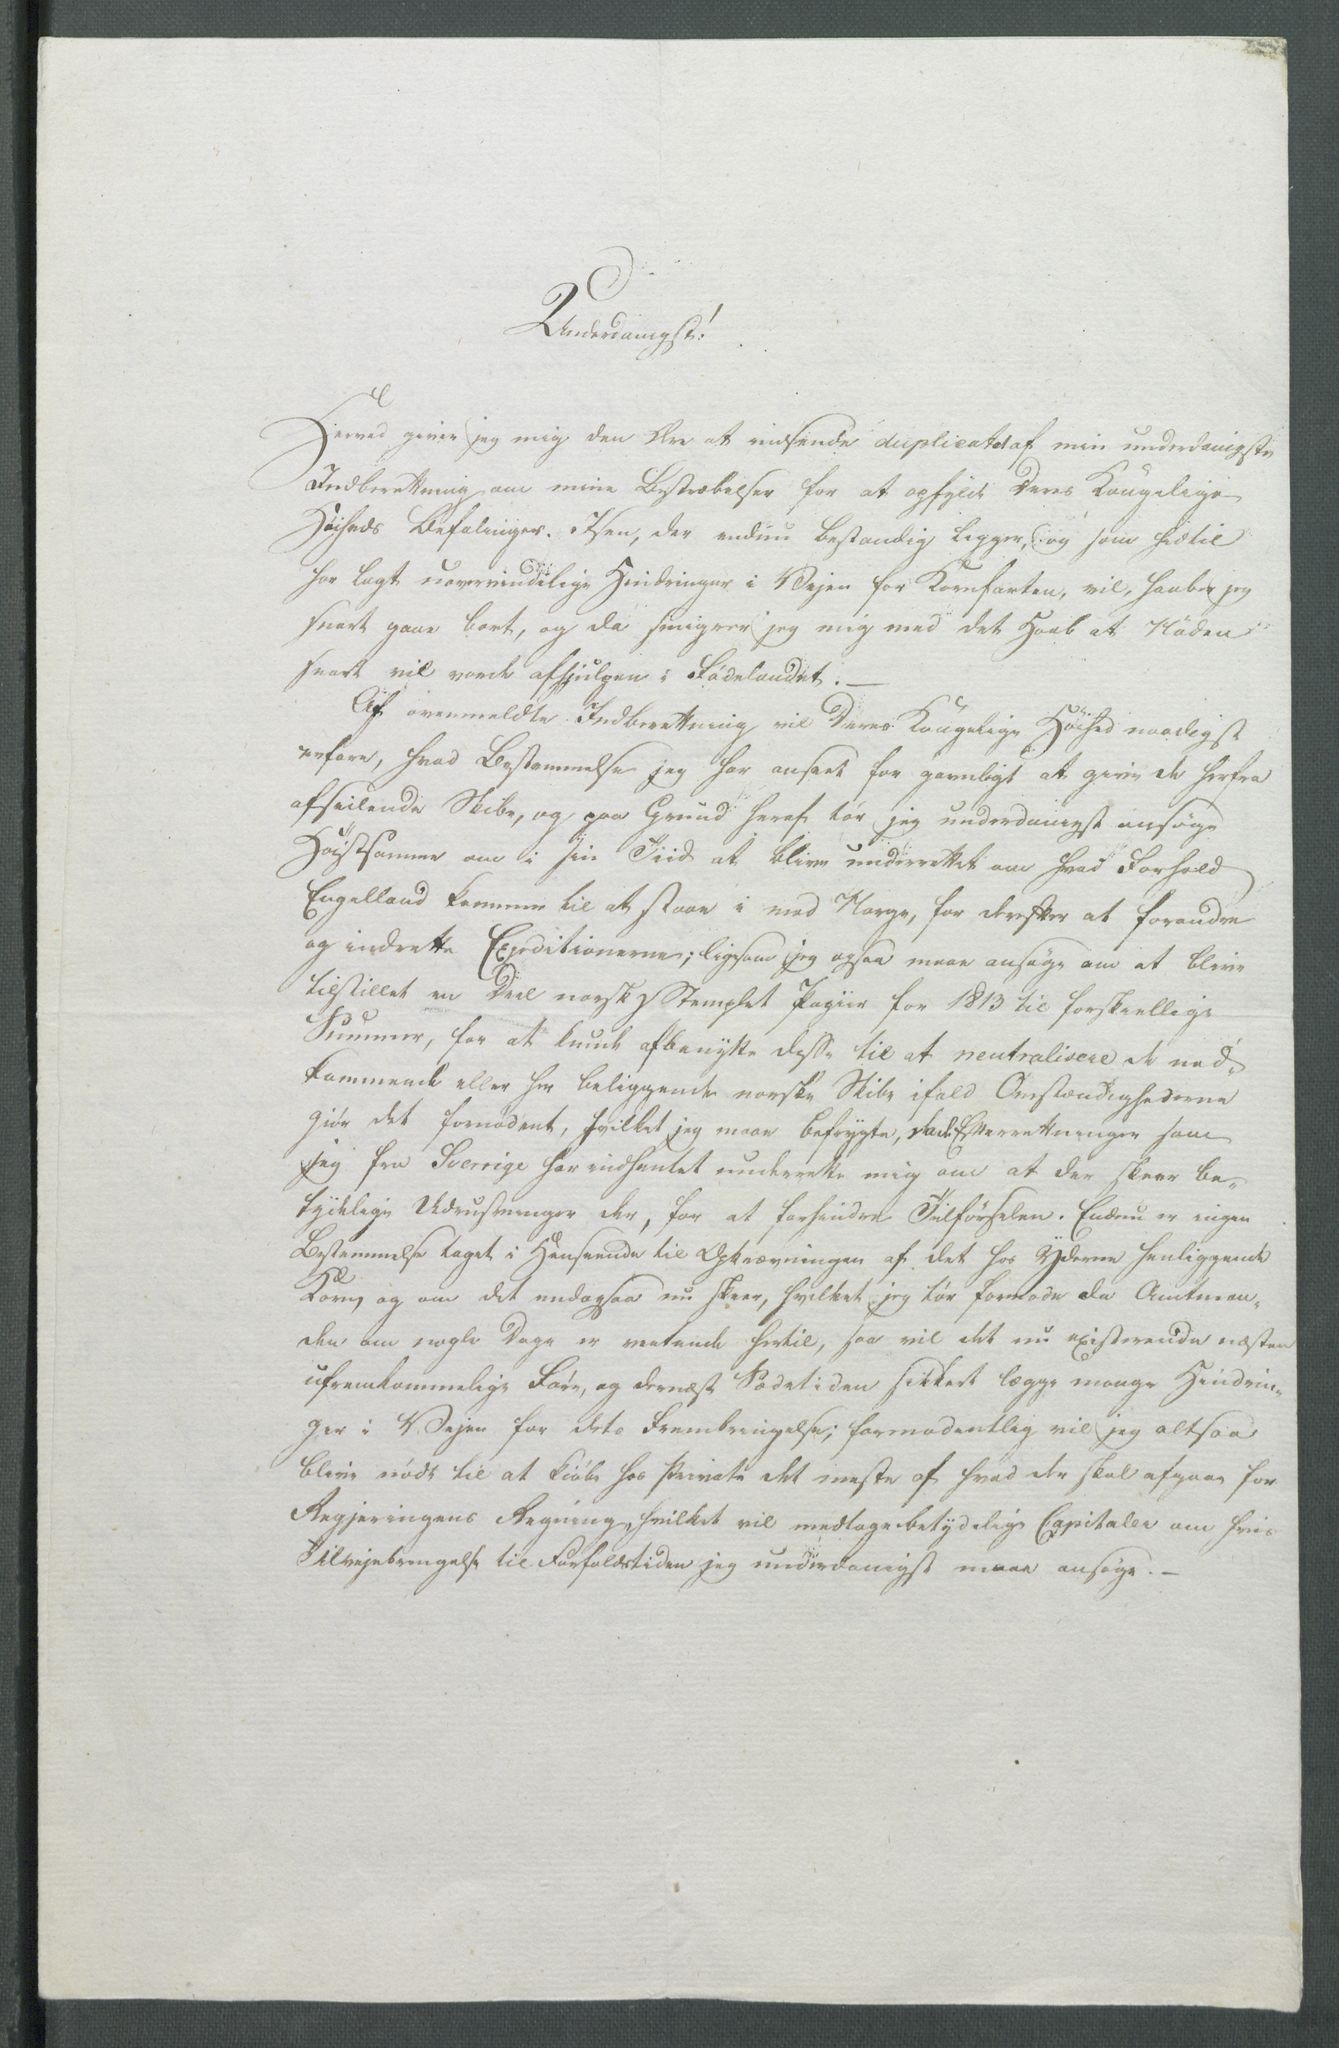 Underdanigst!
Herved giver jeg mig den Ære at indsende duplicate af min underdanigste
Indberettning om mine Bestræbelser for at opfylde Deres Kongelige
Høiheds Befalinger. Isen, der endnu bestandig ligger, og som hidtil
har lagt uovervindelige Hindringer i Vejen for Kornfarten, vil, haaber jeg
snart gaae bort, og da smigrer jeg mig med det Haab at Nøden
snart vil vorde afhjulpen i Fødelandet. —
Af ovenmeldte Indberettning vil Deres Kongelige Høihed naadigst
erfare, hvad Bestemmelse jeg har anseet for gavnligt at give de herfra
afseilende Skibe, og paa Grund heraf tør jeg underdanigst ansøge
Høistsamme om i sin Tiid at blive underrettet om hvad Forhold
Engelland kommer til at staae i med Norge, for derefter at forandre
og indrette Expeditionerne; ligesom jeg ogsaa maae ansøge om at blive
tilstillet en Deel norsk Stemplet Papiir for 1813 til forskiellige
Summer, for at kunde afbenytte disse til at neutralisere de ned-
kommende eller her beliggende norske Skibe ifald Omstændighederne
giør det fornødent, hvilket jeg maae befrygte, da de Efterrettninger som
jeg fra Sverrige har indhentet underrette mig om at der skeer be-
tydelige Udrustninger der, for at forhindre Tilførselen. Endnu er ingen
Bestemmelse taget i Henseende til Opkrævningen af det hos Yderne henliggende
Korn, og om det endogsaa nu skeer, hvilket jeg tør formode da Amtman-
den om nogle Dage er ventende hertil, saa vil det nu existerende næsten
ufremkommelige Føre, og dernæst Sædetiden sikkert lægge mange Hindrin-
ger i Vejen for dets Frembringelse; formodentlig vil jeg altsaa
blive nødt til at kiøbe hos Private det meste af hvad der skal afgaae for
Regjeringens Regning, hvilket vil medtage betydelige Capitaler om hvis
Tilvejebringelse til Forfaldstiden jeg underdanigst maae ansøge. —